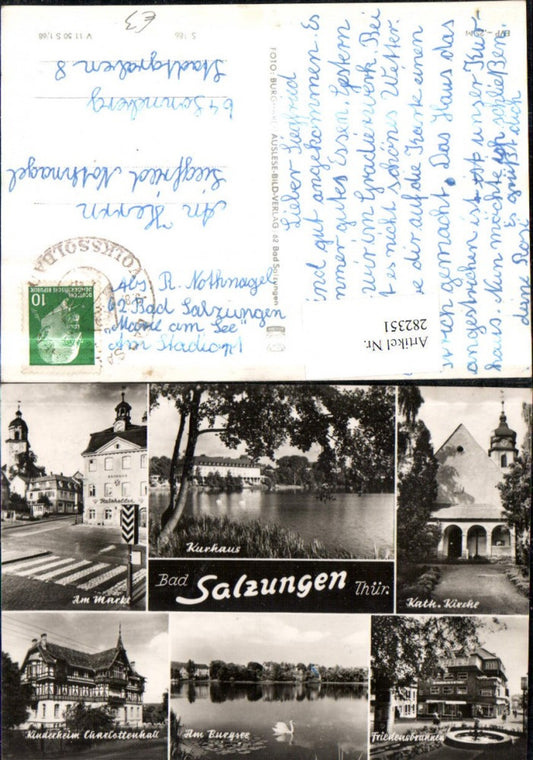 Lieber Siegfried
ind gut angekommen. Es
mmer gutes Essen. Gestern
wir im Gradierwerk. Bei
t es nicht schönes Wetter.
e dir auf die Karte einen
gemacht. Das Haus das
angestrichen ist ist unser Kur-
haus. Nun möchte ich schließen.
Es grüßt dich
deine Rosi
An Herrn
Siegfried Nothnagel
64 Sonneberg
Stadtgraben 8
Abs. R. Nothnagel
62 Bad Salzungen
"Marie am See"
Am Stadion 1
FOTO: BURG
AUSLESE-BILD-VERLAG · 62 Bad Salzungen
V 11 50 S 1/68
S 186
€3
10
DEUTSCHE
DEMOKRATISCHE REPUBLIK
VOLKSSOLBA
Artikel Nr.
282351
RATHAUS
Ratskeller
Am Markt
Kurhaus
Kath. Kirche
Bad Salzungen Thür.
Kinderheim Charlottenhall
Am Burgsee
Friedensbrunnen